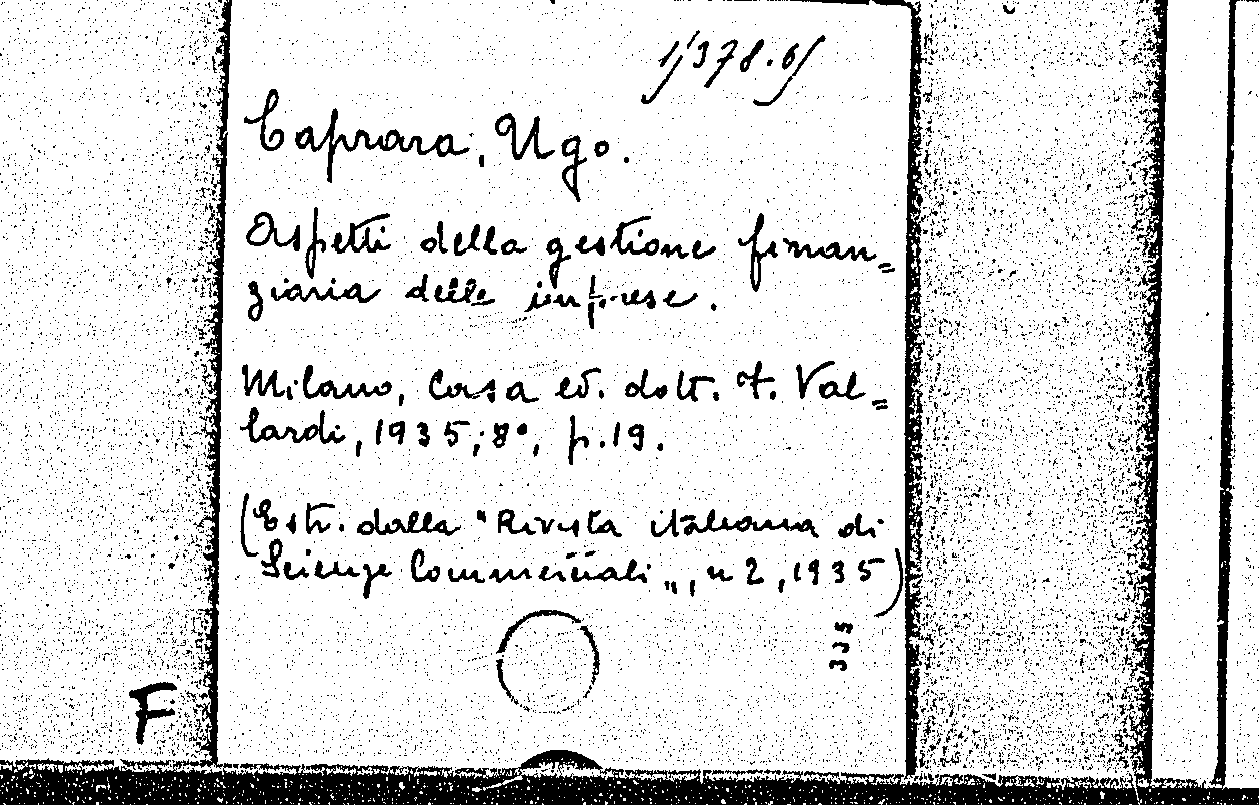 1/378.6/
Caprara, Ugo.
Aspetti della gestione finan=
ziaria delle imprese.
Milano, Casa ed. dott. F. Val=
lardi, 1935; 8°, p. 19.
(Estr. dalla "Rivista italiana di
Scienze Commerciali„, n 2, 1935)
335
F